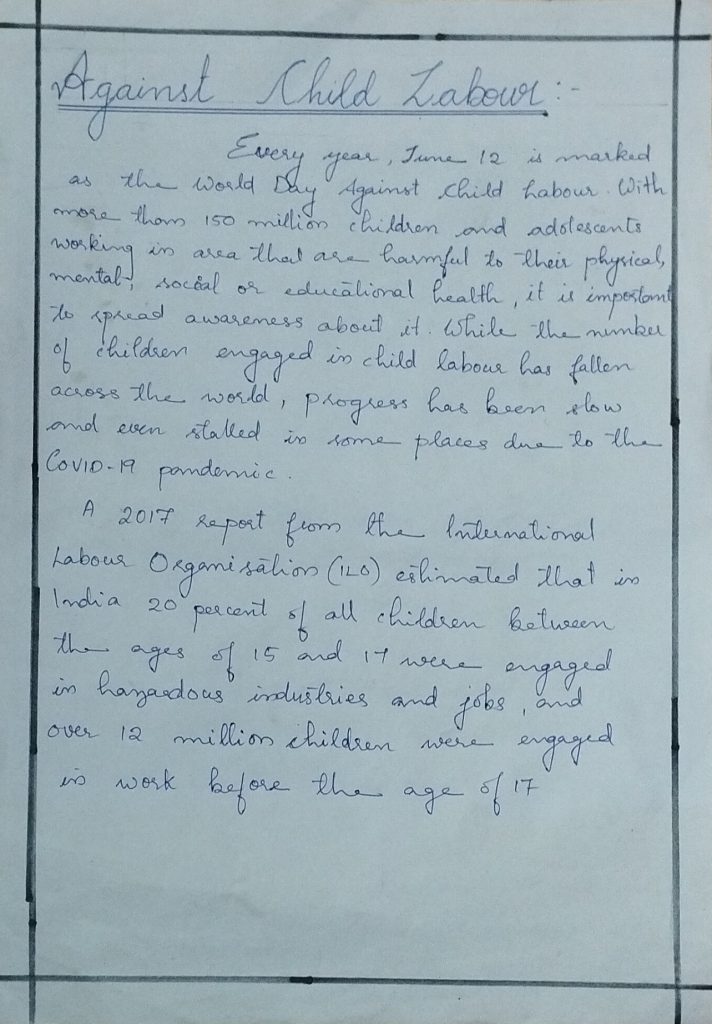 Against Child Labour :-
Every year, June 12 is marked
as the World Day Against Child Labour. With
more than 150 million children and adolescents
working in area that are harmful to their physical,
mental, social or educational health, it is important
to spread awareness about it. While the number
of children engaged in child labour has fallen
across the world, progress has been slow
and even stalled in some places due to the
COVID-19 pandemic.
A 2017 report from the International
Labour Organisation (ILO) estimated that in
India 20 percent of all children between
the ages of 15 and 17 were engaged
in hazardous industries and jobs, and
over 12 million children were engaged
in work before the age of 17